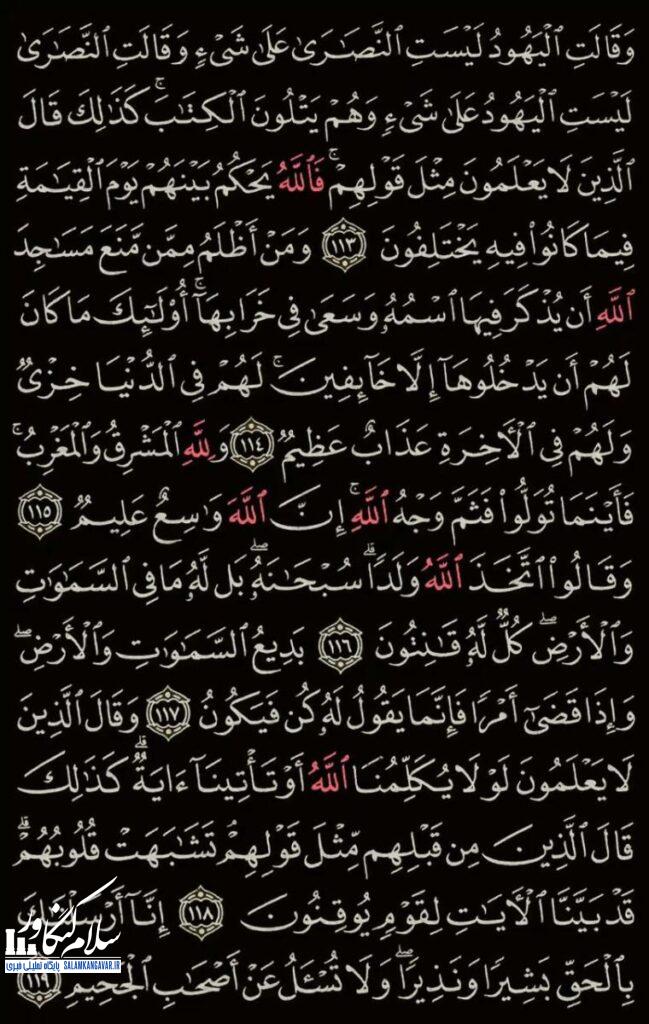 وَقَالَتِ ٱلْيَهُودُ لَيْسَتِ ٱلنَّصَٰرَىٰ عَلَىٰ شَىْءٍ وَقَالَتِ ٱلنَّصَٰرَىٰ
لَيْسَتِ ٱلْيَهُودُ عَلَىٰ شَىْءٍ وَهُمْ يَتْلُونَ ٱلْكِتَٰبَ ۗ كَذَٰلِكَ قَالَ
ٱلَّذِينَ لَا يَعْلَمُونَ مِثْلَ قَوْلِهِمْ ۚ فَٱللَّهُ يَحْكُمُ بَيْنَهُمْ يَوْمَ ٱلْقِيَٰمَةِ
فِيمَا كَانُوا۟ فِيهِ يَخْتَلِفُونَ ١١٣ وَمَنْ أَظْلَمُ مِمَّن مَّنَعَ مَسَٰجِدَ
ٱللَّهِ أَن يُذْكَرَ فِيهَا ٱسْمُهُۥ وَسَعَىٰ فِى خَرَابِهَآ ۚ أُو۟لَٰٓئِكَ مَا كَانَ
لَهُمْ أَن يَدْخُلُوهَآ إِلَّا خَآئِفِينَ ۚ لَهُمْ فِى ٱلدُّنْيَا خِزْىٌ
وَلَهُمْ فِى ٱلْءَاخِرَةِ عَذَابٌ عَظِيمٌ ١١٤ وَلِلَّهِ ٱلْمَشْرِقُ وَٱلْمَغْرِبُ ۚ
فَأَيْنَمَا تُوَلُّوا۟ فَثَمَّ وَجْهُ ٱللَّهِ ۚ إِنَّ ٱللَّهَ وَٰسِعٌ عَلِيمٌ ١١٥
وَقَالُوا۟ ٱتَّخَذَ ٱللَّهُ وَلَدًا ۗ سُبْحَٰنَهُۥ ۖ بَل لَّهُۥ مَا فِى ٱلسَّمَٰوَٰتِ
وَٱلْأَرْضِ ۖ كُلٌّ لَّهُۥ قَٰنِتُونَ ١١٦ بَدِيعُ ٱلسَّمَٰوَٰتِ وَٱلْأَرْضِ ۖ
وَإِذَا قَضَىٰٓ أَمْرًا فَإِنَّمَا يَقُولُ لَهُۥ كُن فَيَكُونُ ١١٧ وَقَالَ ٱلَّذِينَ
لَا يَعْلَمُونَ لَوْلَا يُكَلِّمُنَا ٱللَّهُ أَوْ تَأْتِينَآ ءَايَةٌ ۗ كَذَٰلِكَ
قَالَ ٱلَّذِينَ مِن قَبْلِهِم مِّثْلَ قَوْلِهِمْ ۘ تَشَٰبَهَتْ قُلُوبُهُمْ ۗ
قَدْ بَيَّنَّا ٱلْءَايَٰتِ لِقَوْمٍ يُوقِنُونَ ١١٨ إِنَّآ أَرْسَلْنَٰكَ
بِٱلْحَقِّ بَشِيرًا وَنَذِيرًا ۖ وَلَا تُسْـَٔلُ عَنْ أَصْحَٰبِ ٱلْجَحِيمِ ١١٩
سلام کنگاور
پایگاه تحلیلی خبری SALAMKANGAVAR.IR